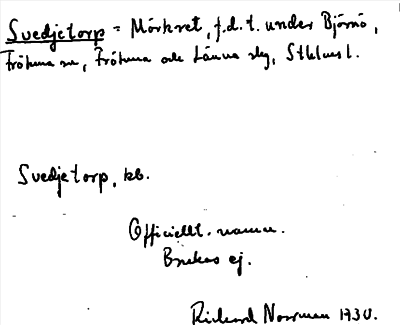 Svedjetorp = Mörkret, f.d.t. under Björnö,
Frötuna sn, Frötuna och Länna skg, Sthlms l.
Svedjetorp, kb.
Officiellt namn.
Brukas ej.
Rickard Norrman 1930.